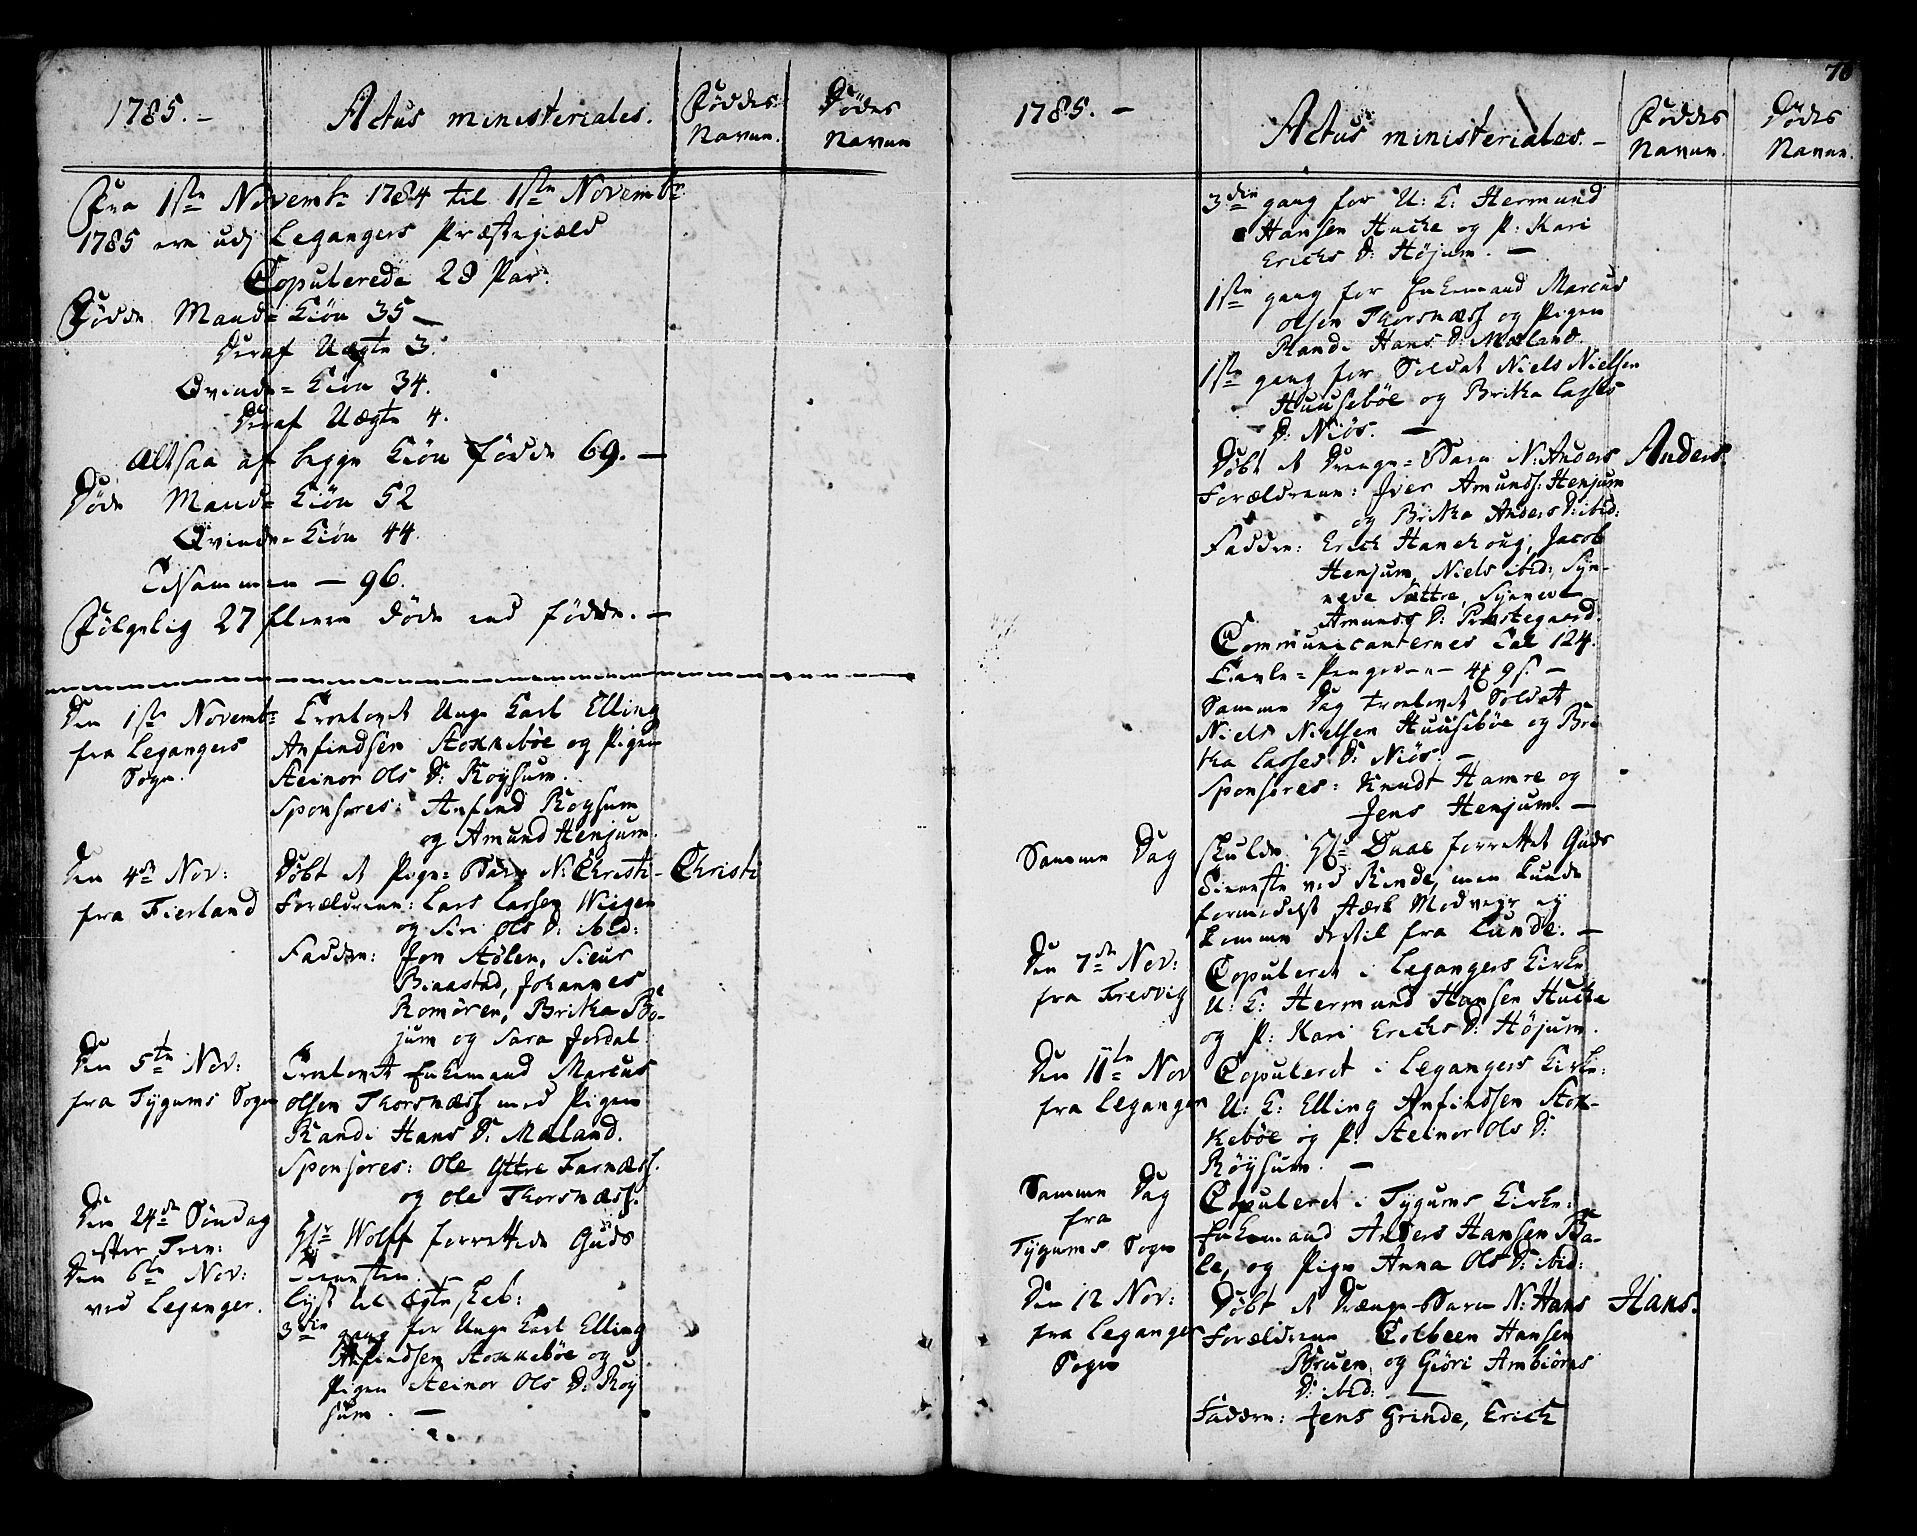 1785. -
Actus ministeriales.
Føddes Navne.
Dødes Navne
Fra 1ste Novembr 1784 til 1ste Novembr
1785 ere udj Legangers Præstegield
Copulerede 29 Par.
Fødde Mand-Kiøn 35 -
Deraf Uægte 3.
Qvinde-Kiøn 34.
Deraf Uægte 4.
Altsaa af begge Kiøn fødde 69. -
Døde Mand-Kiøn 52
Qvinde-Kiøn 44.
Tilsammen - 96.
Følgelig 27 fleere døde end fødde. -
Den 1ste Novembr
fra Legangers
Sogn.
Troelovet Unge Karl Elling
Anfindsen Stokkebøe og Pigen
Steinor Ols D: Røysum.
Sponsores: Anfind Røysum
og Amund Henjum.
Den 4de Nov:
fra Fierland
Døbt et Pige-Barn N: Christi- Christi
Forældrene: Lars Larsen Wiigen
og Siri Ols D: ibid:
Faddere: Jon Stölen, Siur
Binastad, Johannes
Romören, Britha Bö-
jum og Sara Jordal.
Den 5te Nov:
fra Tygums Sogn
Troelovet Enkemand Marcus
Olsen Thorsnæss med Pigen
Randi Hans D: Mæland.
Sponsores: Ole Yttre Farnæss.
og Ole Thorsnæss.
Den 24de Søndag
efter Trin:
Hr Wolff forrettede Guds
Tienesten.
Den 6te Nov:
ved Leganger.
Lyst til Ægteskab:
3die gang for Unge Karl Elling
Anfindsen Stokkebøe og
Pigen Steinor Ols D: Røy
sum. -
1785. -
Actus ministeriales. -
Føddes Navne.
Dødes Navne.
70
3die gang for U: K: Hermund
Hansen Hucke og P: Kari
Erichs D: Höjum. -
1ste gang for Enkemand Marcus
Olsen Thorsnæss og Pigen
Randi Hans D: Mæland.
1ste gang for Soldat Niels Nielsen
Huusebøe og Britha Lasses
D: Niös. -
Døbt et Drenge-Barn N: Anders Anders.
Forældrene: Iver Amunds: Henjum
og Britha Anders D: ibid:
Faddere: Erich Hanehoug, Jacob
Henjum, Niels ibid:, Syn-
neve Sættre, Synnevt
Amunds D: Præstegaard.
Communicanternes Tal 124.
Tavle-Pengene - 4 9 s. -
Samme Dag troelovet Soldat
Niels Nielsen Huusebøe og Bri
tha Lasses D: Niös. -
Sponsores: Knudt Hamre og
Jens Henjum. -
Samme Dag
skulde Hr Daae forrettet Guds
Tieneste ved Rinde, men kunde
formedelst stærk Modveyr ey
komme dertil fra Lunde. -
Den 7de Nov:
fra Fresvig
Copuleret i Legangers Kirke
U: K: Hermund Hansen Hucke
og P: Kari Erichs D: Höjum.
Den 11te Nov
fra Leganger
Copuleret i Legangers Kirke:
U: K: Elling Anfindsen Stok-
kebøe og P: Steinor Ols D:
Röysum. -
Samme Dag
fra
Tygums Sogn
Copuleret i Tygums Kirke:
Enkemand Anders Hansen Ba-
le, og Pige Anna Ols D: ibid:
Den 12 Nov:
fra Leganger
Sogn
Døbt et Drenge-Barn N: Hans Hans.
Forældrene Colbeen Hansen
Bruen, og Giöri Ambiörns
D: ibid: -
Faddere: Jens Grinde, Erich